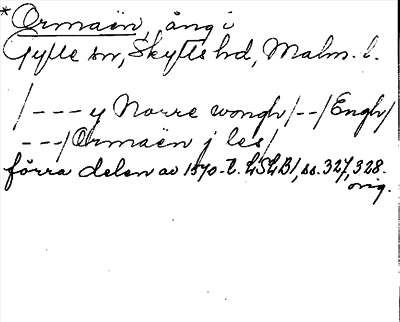 *Ormaën, äng i
Gylle sn, Skytts hd, Malm. l.
/--- y Norre wongh/--/Engh/
---/Ormaën j les/
förra delen av 1570-t. LSLB1, ss. 327, 328.
orig.